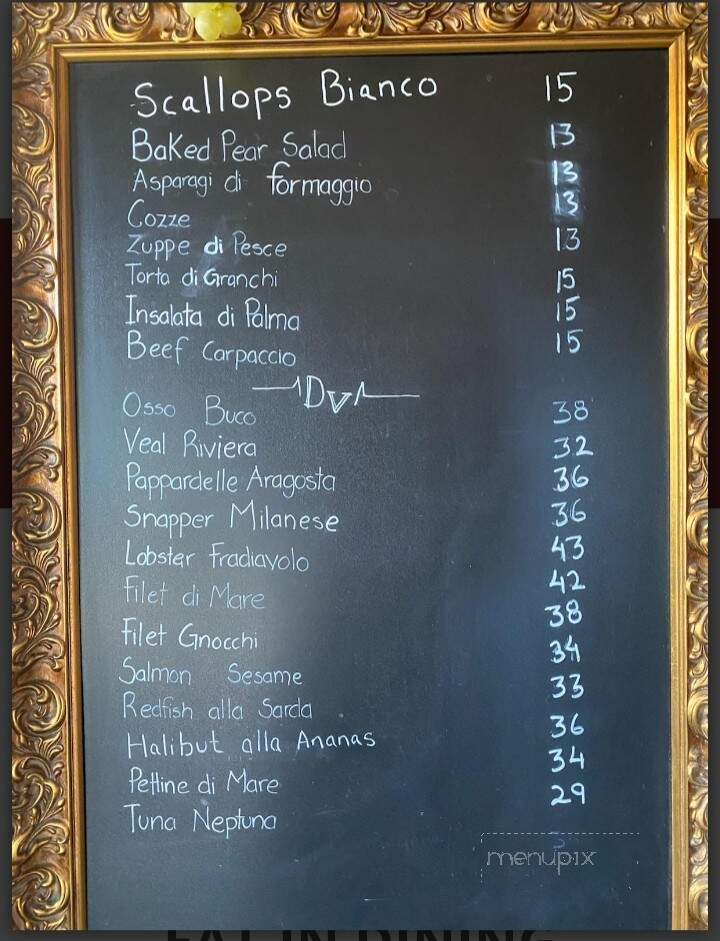 Scallops Bianco 15
Baked Pear Salad 13
Asparagi di formaggio 13
Cozze 13
Zuppe di Pesce 13
Torta di Granchi 15
Insalata di Palma 15
Beef Carpaccio 15
DV
Osso Buco 38
Veal Riviera 32
Pappardelle Aragosta 36
Snapper Milanese 36
Lobster Fradiavolo 43
Filet di Mare 42
Filet Gnocchi 38
Salmon Sesame 34
Redfish alla Sarda 33
Halibut alla Ananas 36
Pettine di Mare 34
Tuna Neptuna 29
menupix
EAT IN DINING